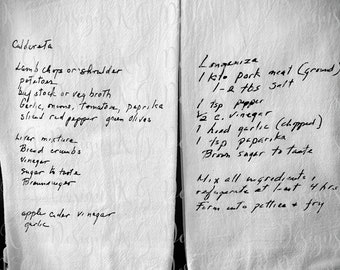 Caldereta
Lamb chops or shoulder
potatoes
beef stock or veg broth
Garlic, onions, tomatoes, paprika
sliced red pepper green olives
Liver mixture
Bread crumbs
vinegar
Sugar to taste
Brown sugar
apple cider vinegar
garlic
Longaniza
1 kto pork meat (ground)
1-2 tbs salt
1 tsp pepper
1/2 c. vinegar
1 head garlic (chopped)
1 tsp paprika
Brown sugar to taste
Mix all ingredients,
refrigerate at least 4 hrs.
Form into patties & fry